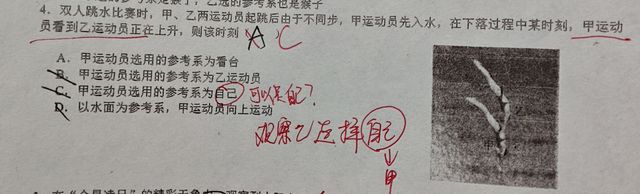 4. 双人跳水比赛时，甲、乙两运动员起跳后由于不同步，甲运动员先入水，在下落过程中某时刻，甲运动
员看到乙运动员正在上升，则该时刻 A C
A. 甲运动员选用的参考系为看台
B. 甲运动员选用的参考系为乙运动员
C. 甲运动员选用的参考系为自己 可以是自己？
D. 以水面为参考系，甲运动员向上运动
观察乙选择自己
甲